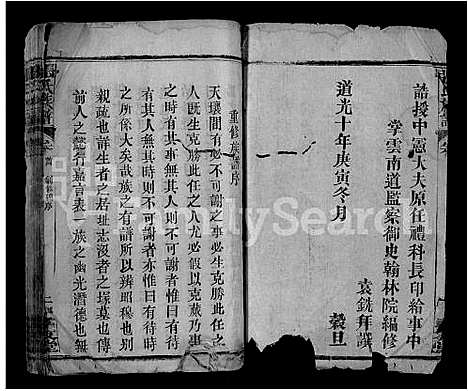 誥授中憲大夫原任禮科長印給事中
掌雲南道監察御史翰林院編修
袁銑拜譔
道光十年庚寅冬月
穀旦
重修族譜序
天壤間有必不可謝之事必生克勝此任之
人既生克勝此任之人尤必假以克蕆乃事
之時有其事無其人則不可謝者惟曰有待
有其人無其時則不可謝者亦惟曰有待時
之所係大矣哉族之有譜所以辨昭穆別
親疏也詳生者之居址志沒者之墳墓也傳
前人之懿行嘉言表一族之幽光潛德也無
FamilySearch